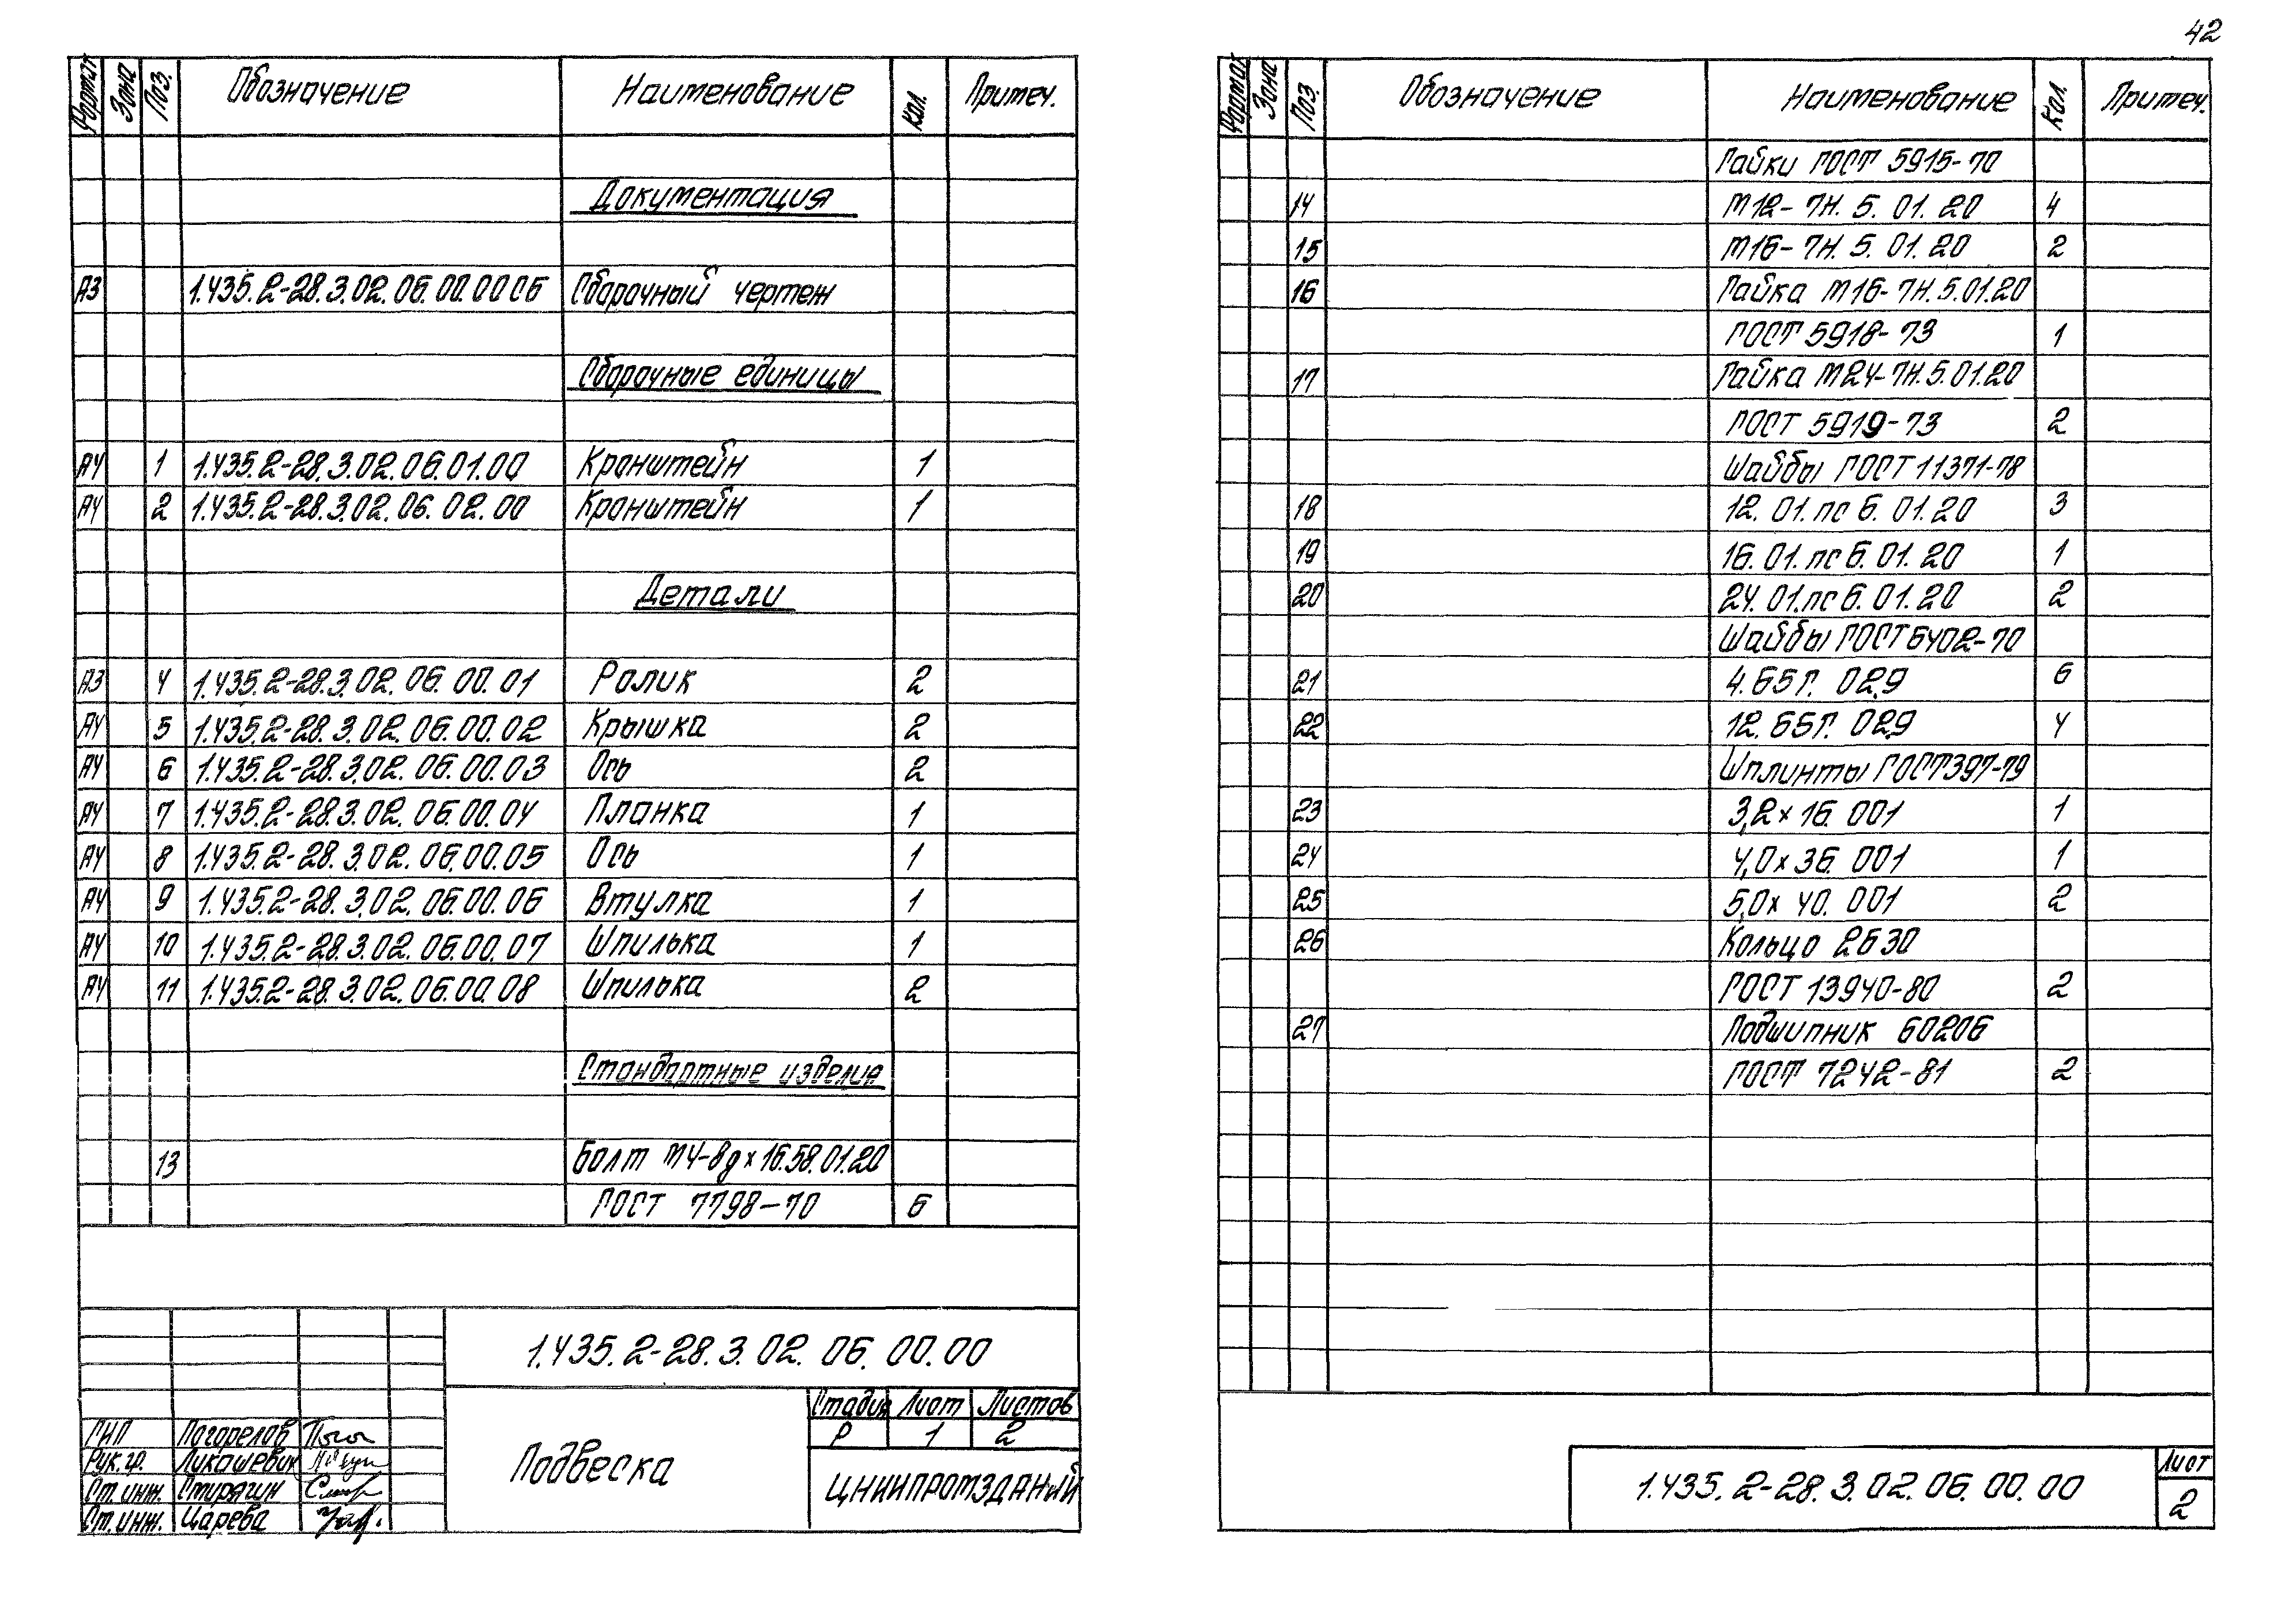 42
Формат Зона Поз. Обозначение Наименование Кол. Примеч.
Документация
А3 1.435.2-28.3.02.06.00.00СБ Сборочный чертеж
Сборочные единицы
А4 1 1.435.2-28.3.02.06.01.00 Кронштейн 1
А4 2 1.435.2-28.3.02.06.02.00 Кронштейн 1
Детали
А3 4 1.435.2-28.3.02.06.00.01 Ролик 2
А4 5 1.435.2-28.3.02.06.00.02 Крышка 2
А4 6 1.435.2-28.3.02.06.00.03 Ось 2
А4 7 1.435.2-28.3.02.06.00.04 Планка 1
А4 8 1.435.2-28.3.02.06.00.05 Ось 1
А4 9 1.435.2-28.3.02.06.00.06 Втулка 1
А4 10 1.435.2-28.3.02.06.00.07 Шпилька 1
А4 11 1.435.2-28.3.02.06.00.08 Шпилька 2
Стандартные изделия
13 Болт М4-8g×16.58.01.20
ГОСТ 7798-70 6
1.435.2-28.3.02.06.00.00
Подвеска
Стадия Лист Листов
Р 1 2
ЦНИИПРОМЗДАНИЙ
ГИП Погорелов
Рук.гр. Лукашевич
Ст.инж. Стирягин
Ст.инж. Царева
Формат Зона Поз. Обозначение Наименование Кол. Примеч.
Гайки ГОСТ 5915-70
14 М12-7Н.5.01.20 4
15 М16-7Н.5.01.20 2
16 Гайка М16-7Н.5.01.20
ГОСТ 5918-73 1
17 Гайка М24-7Н.5.01.20
ГОСТ 5919-73 2
Шайбы ГОСТ 11371-78
18 12.01.пс6.01.20 3
19 16.01.пс6.01.20 1
20 24.01.пс6.01.20 2
Шайбы ГОСТ 6402-70
21 4.65Г.029 6
22 12.65Г.029 4
Шплинты ГОСТ397-79
23 3,2×16.001 1
24 4,0×36.001 1
25 5,0×40.001 2
26 Кольцо 2Б30
ГОСТ 13940-80 2
27 Подшипник 60206
ГОСТ 7242-81 2
1.435.2-28.3.02.06.00.00
Лист
2